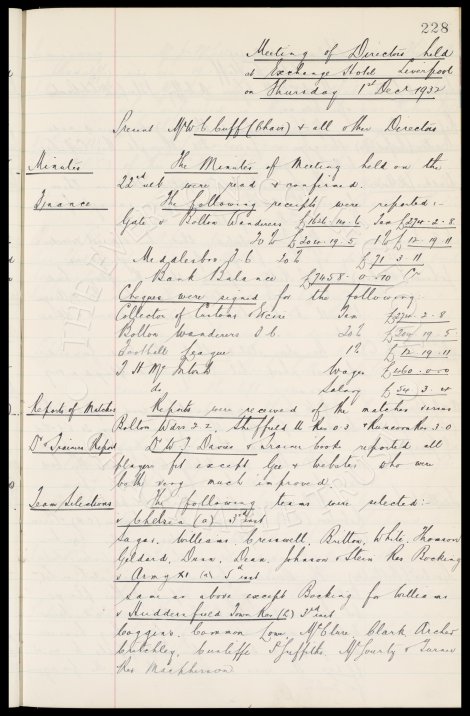 228
Meeting of Directors held
at Exchange Hotel Liverpool
on Thursday 1st Decr 1932
Present Mr W C Cuff (Chair) & all other Directors
Minutes The Minutes of Meeting held on the
22nd ult were read & confirmed.
Finance The following receipts were reported:-
Gate v Bolton Wanderers £1626.14.6 Tax £274.2.8
20% £204.19.5 1% £12.19.11
Middlesbro F C 20% £71.3.11
Bank Balance £7458.0.10 Cr
Cheques were signed for the following:
Collector of Customs & Excise Tax £274.2.8
Bolton Wanderers F C 20% £204.19.5
Football League 1% £12.19.11
T H McIntosh Wages £460.0.0
do Salary £54.3.4
Reports of Matches Reports were received of the matches versus
Bolton Wdrs 2.2, Sheffield U Res 0.3 & Runcorn Res 3.0
Dr & Trainers Report Dr W J Davies & Trainer book reported all
players fit except Gee & Webster who were
both very much improved.
Team Selections The following teams were selected:-
v Chelsea (a) 3rd inst
Sagar, Williams, Cresswell, Britton, White, Thomson
Geldard, Dunn, Dean, Johnson & Stein Res Bocking
v Army XI (a) 5th inst
Same as above except Bocking for Williams
v Huddersfield Town Res (h) 3rd inst
Coggins, Common, Lowe, McClure, Clark, Archer
Critchley, Cunliffe, P Griffiths, McGourty & Turner
Res Macpherson